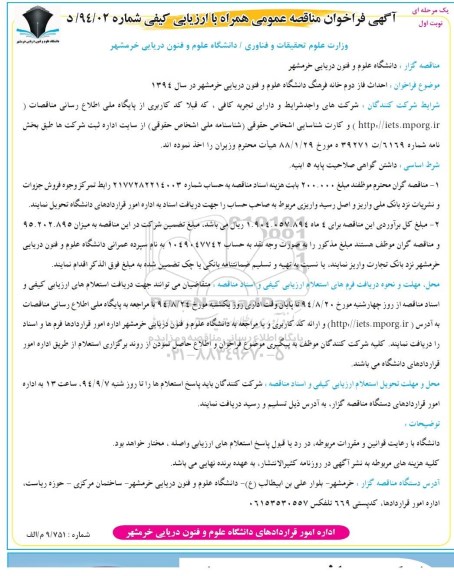 یک مرحله ای
نوبت اول
آگهی فراخوان مناقصه عمومی همراه با ارزیابی کیفی شماره ۹۴/۰۲/د
وزارت علوم تحقیقات و فناوری / دانشگاه علوم و فنون دریایی خرمشهر
مناقصه گزار : دانشگاه علوم و فنون دریایی خرمشهر
موضوع فراخوان : احداث فاز دوم خانه فرهنگ دانشگاه علوم و فنون دریایی خرمشهر در سال ۱۳۹۴
شرایط شرکت کنندگان : شرکت های واجدشرایط و دارای تجربه کافی ، که قبلا کد کاربری از پایگاه ملی اطلاع رسانی مناقصات (
http://iets.mporg.ir ) و کارت شناسایی اشخاص حقوقی (شناسنامه ملی اشخاص حقوقی) از سایت اداره ثبت شرکت ها طبق بخش
نامه شماره ۶۱۶۹/ت ۳۹۲۷۱ ه مورخ ۸۸/۱/۲۹ هیأت محترم وزیران را اخذ نموده اند.
شرط اساسی : داشتن گواهی صلاحیت پایه ۵ ابنیه.
۱- مناقصه گران محترم موظفند مبلغ ۲۰۰.۰۰۰ بابت هزینه اسناد مناقصه به حساب شماره ۲۱۷۷۲۸۲۲۱۴۰۰۳ رابط تمرکز وجوه فروش جزوات
و نشریات نزد بانک ملی واریز و اصل رسید واریزی مربوط به صاحب حساب را جهت دریافت اسناد به اداره امور قراردادهای دانشگاه تحویل نمایند.
۲- مبلغ کل برآوردی این مناقصه برای ۴ ماه ۱.۹۰۴.۰۵۷.۸۹۴ ریال می باشد. مبلغ تضمین شرکت در این مناقصه به میزان ۹۵.۲۰۲.۸۹۵
و مناقصه گران موظف هستند مبلغ مذکور را به صورت وجه نقد به حساب ۱۰۴۹۰۴۷۷۴۲ به نام سپرده عمرانی دانشگاه علوم و فنون دریایی
خرمشهر نزد بانک تجارت واریز نمایند. یا نسبت به تهیه و تسلیم ضمانتنامه بانکی یا چک تضمین شده به مبلغ فوق الذکر اقدام نمایند.
محل، مهلت و نحوه دریافت فرم های استعلام ارزیابی کیفی و اسناد مناقصه : متقاضیان می توانند جهت دریافت استعلام های ارزیابی کیفی و
اسناد مناقصه از روز چهارشنبه مورخ ۹۴/۸/۲۰ تا پایان وقت اداری روز یکشنبه مورخ ۹۴/۸/۲۴ با مراجعه به پایگاه ملی اطلاع رسانی مناقصات
به آدرس ( http://iets.mporg.ir) و ارائه کد کاربری و یا مراجعه به دانشگاه علوم و فنون دریایی خرمشهر اداره امور قراردادها فرم ها و اسناد
را دریافت نمایند. کلیه شرکت کنندگان موظف به پیگیری موضوع فراخوان و اطلاع حاصل نمودن از روند برگزاری استعلام از طریق اداره امور
قراردادهای دانشگاه می باشند.
محل و مهلت تحویل استعلام ارزیابی کیفی و اسناد مناقصه : شرکت کنندگان باید پاسخ استعلام ها را تا روز شنبه ۹۴/۹/۷، ساعت ۱۳ به اداره
امور قراردادهای دستگاه مناقصه گزار، به آدرس ذیل تسلیم و رسید دریافت نمایند.
توضیحات :
دانشگاه با رعایت قوانین و مقررات مربوطه، در رد یا قبول پاسخ استعلام های ارزیابی واصله ، مختار خواهد بود.
کلیه هزینه های مربوطه به نشر آگهی در روزنامه کثیرالانتشار، به عهده برنده نهایی می باشد.
آدرس دستگاه مناقصه گزار : خرمشهر- بلوار علی بن ابیطالب (ع)- دانشگاه علوم و فنون دریایی خرمشهر- ساختمان مرکزی – حوزه ریاست،
اداره امور قراردادها، کدپستی ۶۶۹ تلفکس ۰۶۱۵۳۵۳۰۵۵۷
اداره امور قراردادهای دانشگاه علوم و فنون دریایی خرمشهر
شماره : ۹/۷۵۱ م/الف
۰۲۱-۸۸۳۴۹۶۷۰-۵